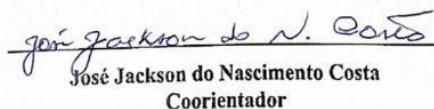 José Jackson do N. Costa
José Jackson do Nascimento Costa
Coorientador